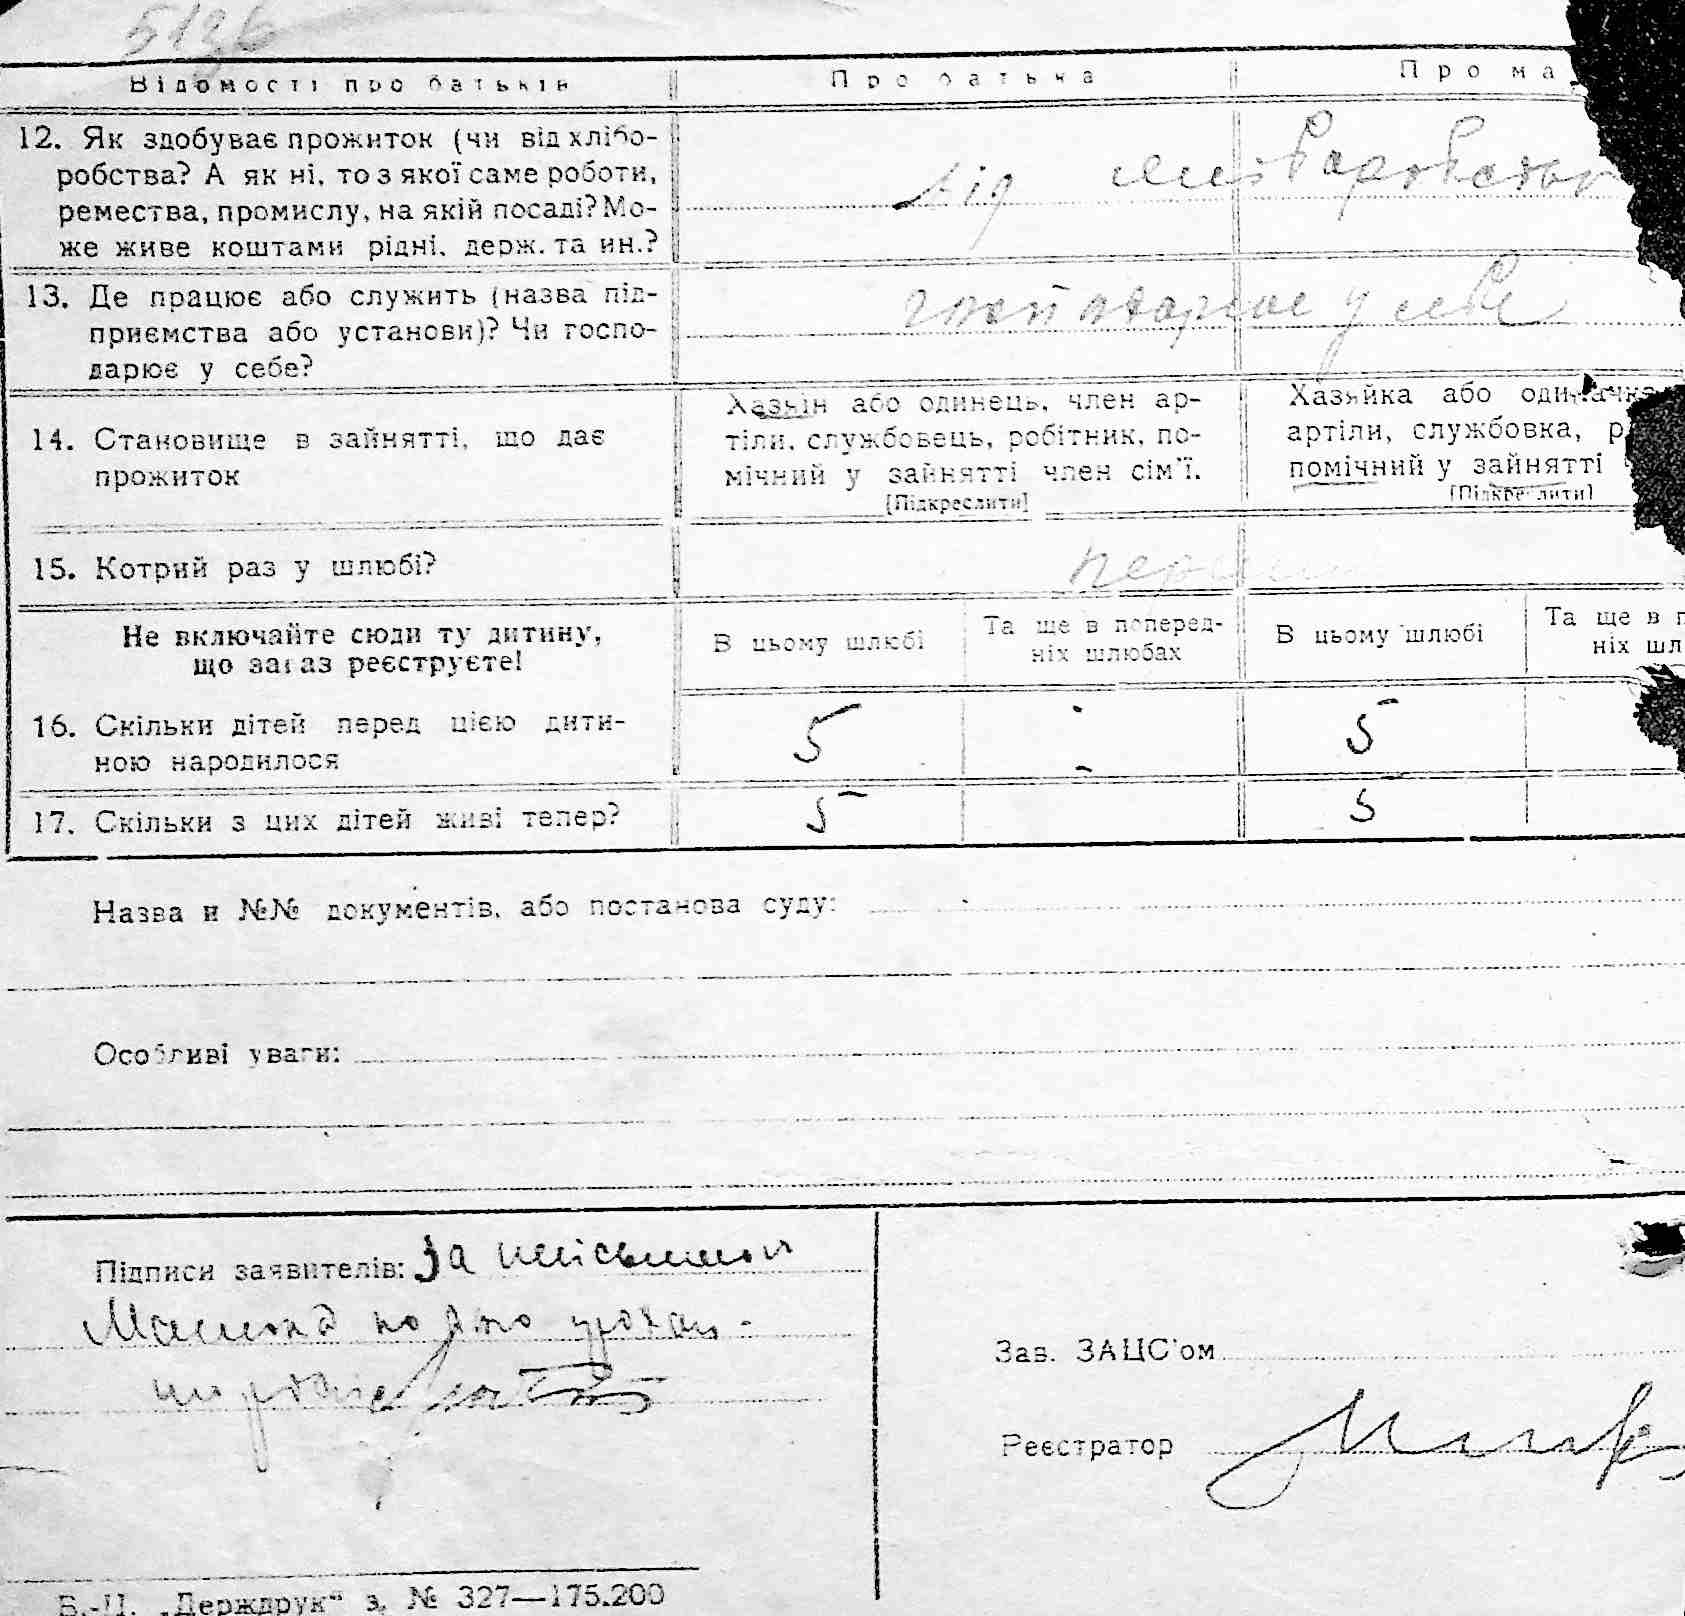 5126
Відомості про батьків
Про батька
Про ма
12. Як здобуває прожиток (чи від хлібо-
робства? А як ні, то з якої саме роботи,
ремества, промислу, на якій посаді? Мо-
же живе коштами рідні, держ. та ин.?
від
13. Де працює або служить (назва під-
приємства або установи)? Чи госпо-
дарює у себе?
господарює у себе
14. Становище в зайнятті, що дає
прожиток
Хазяїн або одинець, член ар-
тіли, службовець, робітник, по-
мічний у зайнятті член сім'ї.
[Підкреслити]
Хазяйка або одиначка
артіли, службовка, р
помічний у зайнятті
[Підкреслити]
15. Котрий раз у шлюбі?
Не включайте сюди ту дитину,
що зараз реєструєте!
В цьому шлюбі
Та ще в поперед-
ніх шлюбах
В цьому шлюбі
Та ще в п
ніх шл
16. Скільки дітей перед цією дити-
ною народилося
5
-
5
17. Скільки з цих дітей живі тепер?
5
5
Назва й №№ документів, або постанова суду:
Особливі уваги:
Підписи заявителів: За
Зав. ЗАЦС'ом
Реєстратор
Б.-Ц. „Держдрук“ з. № 327—175.200